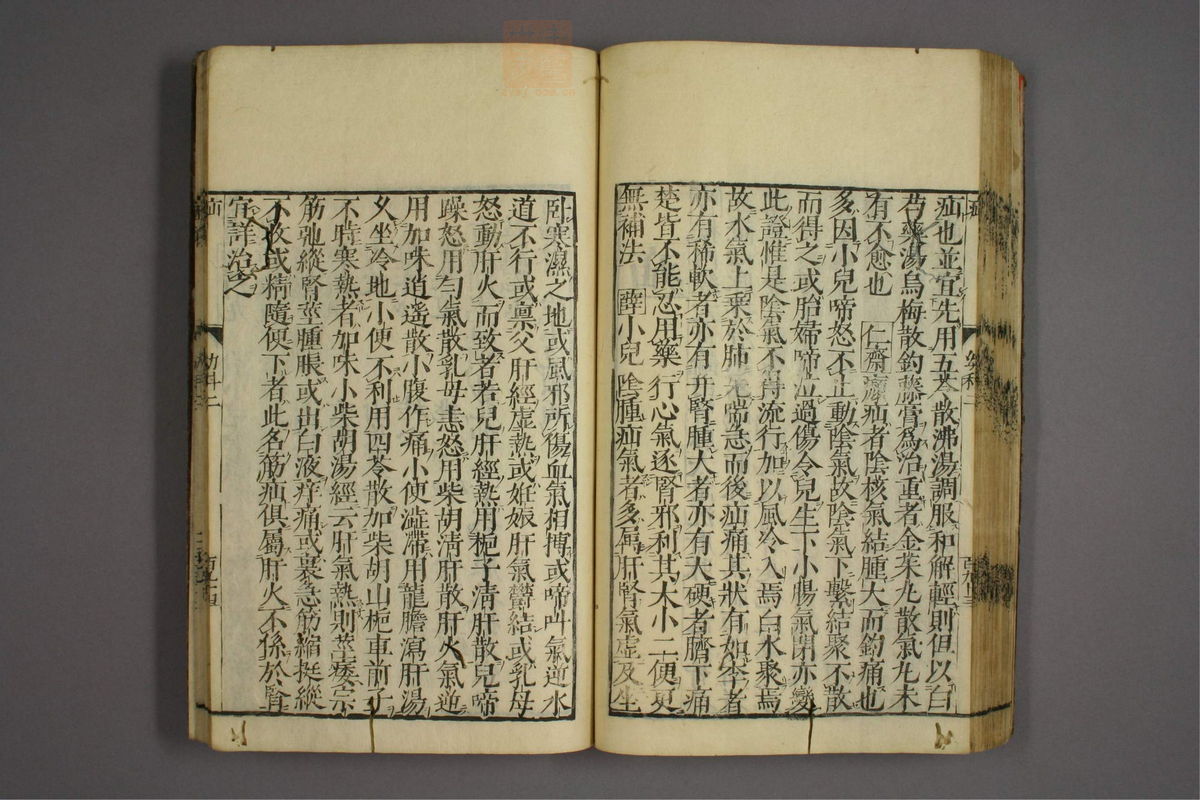 疝也並宜先用五苓散沸湯調服和解輕則但以白
芍藥湯烏梅散鈎藤膏爲治重者金茱丸散氣丸未
有不愈也 仁齋㿗疝者陰核氣結腫大而釣痛也
多因小兒啼怒不止動陰氣故陰氣下擊結聚不散
而得之或胎婦啼泣過傷令兒生下小腸氣閉亦變
此證惟是陰氣不得流行加以風冷入焉白水聚焉
故水氣上乗於肺先喘急而後疝痛其狀有如李者
亦有稀軟者亦有弄腎腫大者亦有大硬者臍下痛
楚皆不能忍用藥行心氣逐腎邪利其大小二便更
無補法 薛小兒陰腫疝氣者多屬肝腎氣虛及坐
卧寒濕之地或風邪所傷血氣相搏或啼叫氣逆水
道不行或禀父肝經虛熱或姙娠肝氣鬱結或乳母
怒動肝火而致者若兒肝經熱用梔子清肝散兒啼
躁怒用勻氣散乳母恚怒用柴胡清肝散肝火氣逆
用加味逍遙散小腹作痛小便澁滯用龍膽瀉肝湯
久坐冷地小便不利用四苓散加柴胡山梔車前子
不時寒熱者加味小柴胡湯經云肝氣熱則莖痿宗
筋弛縱腎莖腫脹或出白液痒痛或裏急筋縮挺縱
不收或精隨便下者此名筋疝俱屬肝火不係於腎
宜詳治之
疝
幼科二